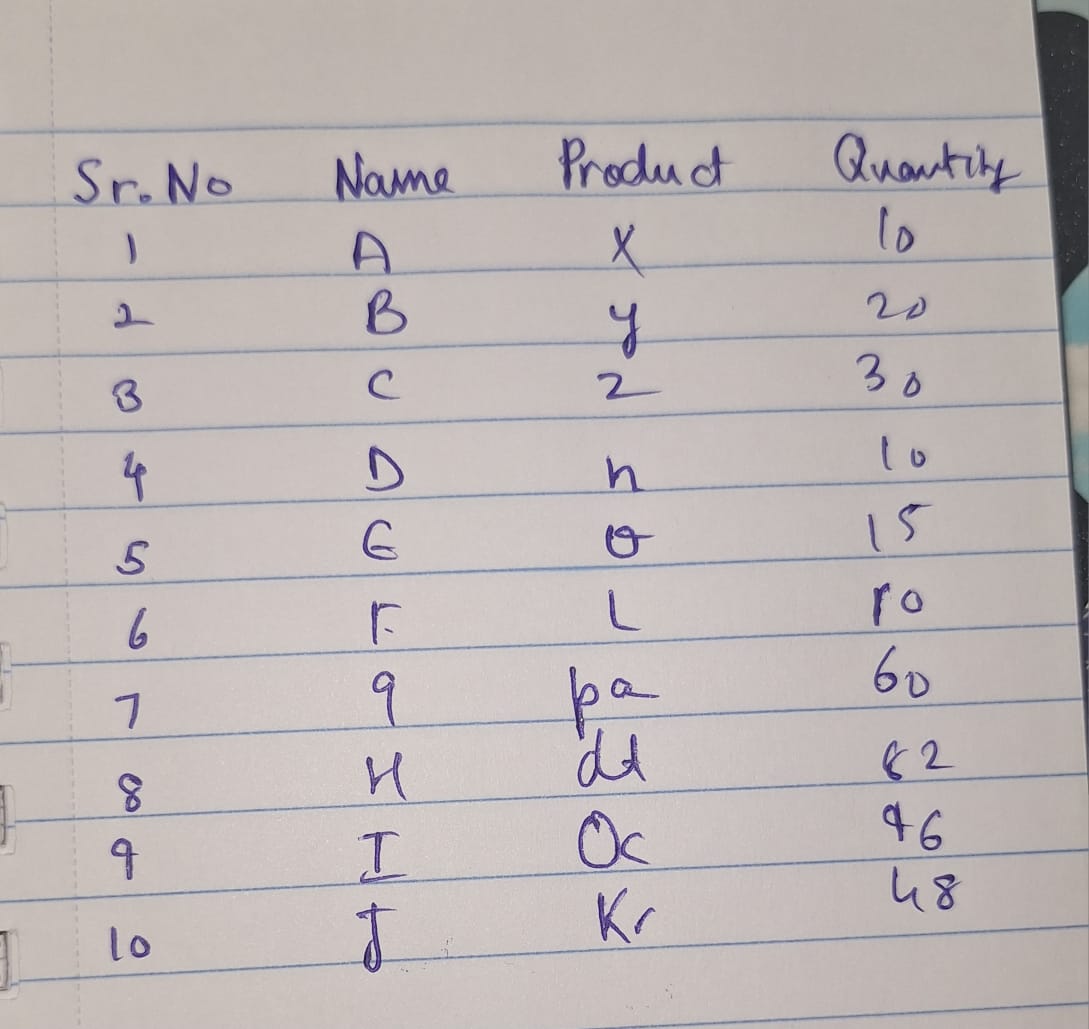 Sr. No Name Product Quantity
1 A X 10
2 B y 20
3 C z 30
4 D n 10
5 E o 15
6 F L 10
7 g pa 60
8 H dd 82
9 I Oc 96
10 J Kr 48